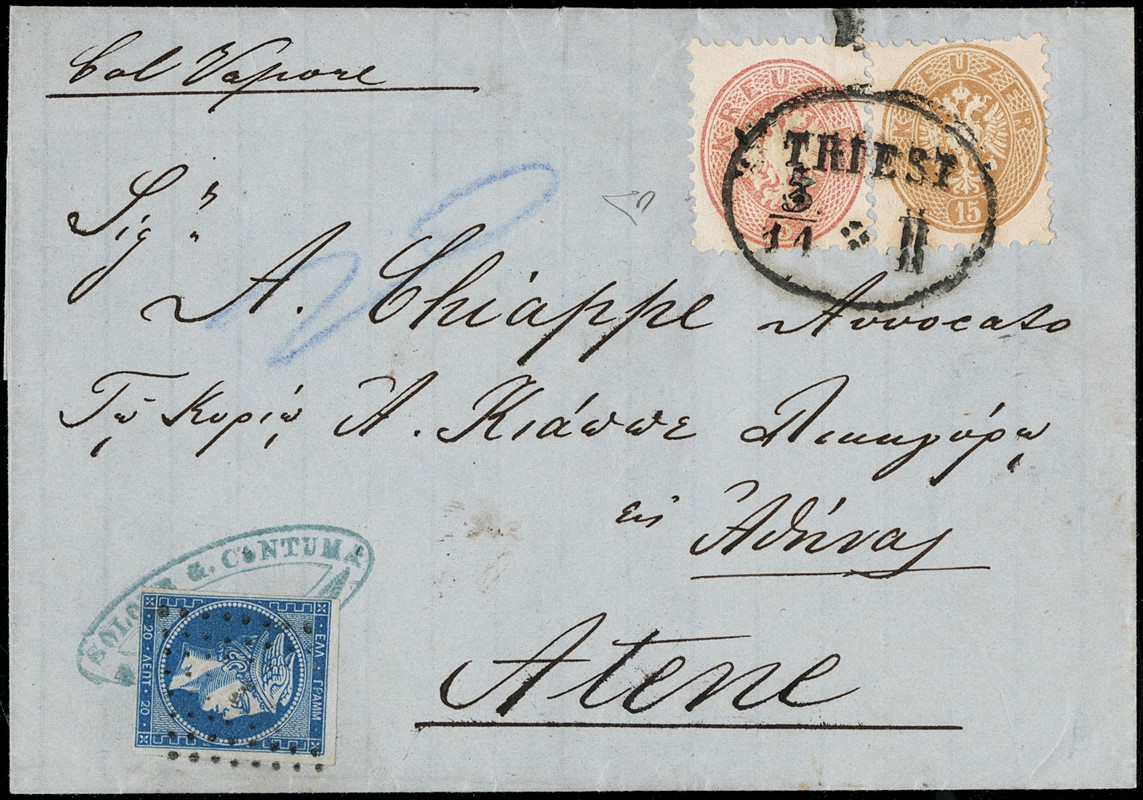 Col Vapore
KREUZER
KREUZER 15
TRIEST
5
11 II
Sig.
A. Chiappe Avvocato
Τῷ Κυρίῳ Ἀ. Κιάππε Δικηγόρῳ
εἰς Ἀθήνας
Atene
& CONTUMA
ΕΛΛ. ΓΡΑΜΜ.
20 ΛΕΠΤ. 20